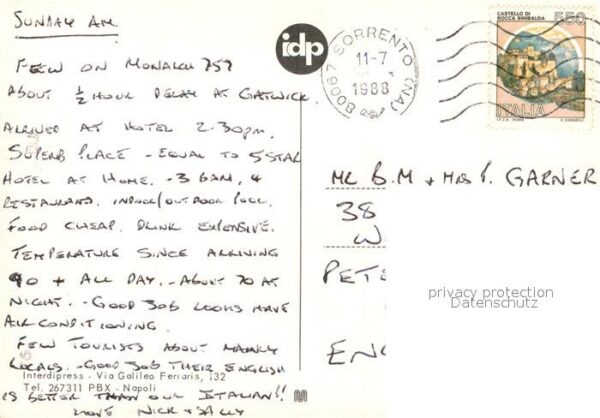 SUNDAY AM.
FLEW ON MONARCH 757
ABOUT ½ HOUR DELAY AT GATWICK.
ARRIVED AT HOTEL 2.30pm.
SUPERB PLACE - EQUAL TO 5 STAR
HOTEL AT HOME. - 3 BARS, 4
RESTAURANTS. INDOOR/OUTDOOR POOL.
FOOD CHEAP. DRINK EXPENSIVE.
TEMPERATURE SINCE ARRIVING
90 + ALL DAY. - ABOUT 70 AT
NIGHT. - GOOD JOB ROOMS HAVE
AIR CONDITIONING.
FEW TOURISTS ABOUT MAINLY
LOCALS. - GOOD JOB THEIR ENGLISH
Interdipress - Via Galileo Ferraris, 132
Tel. 267311 PBX - Napoli
IS BETTER THAN OUR ITALIAN!!
LOVE NICK + SALLY
idp
80067 SORRENTO (NA)
11-7
1988
CASTELLO DI
ROCCA SINIBALDA
550
ITALIA
I.P.Z.S. - ROMA
E. VANGELLI
MR B.M + MRS P. GARNER
38
W
PETE
ENG
privacy protection
Datenschutz